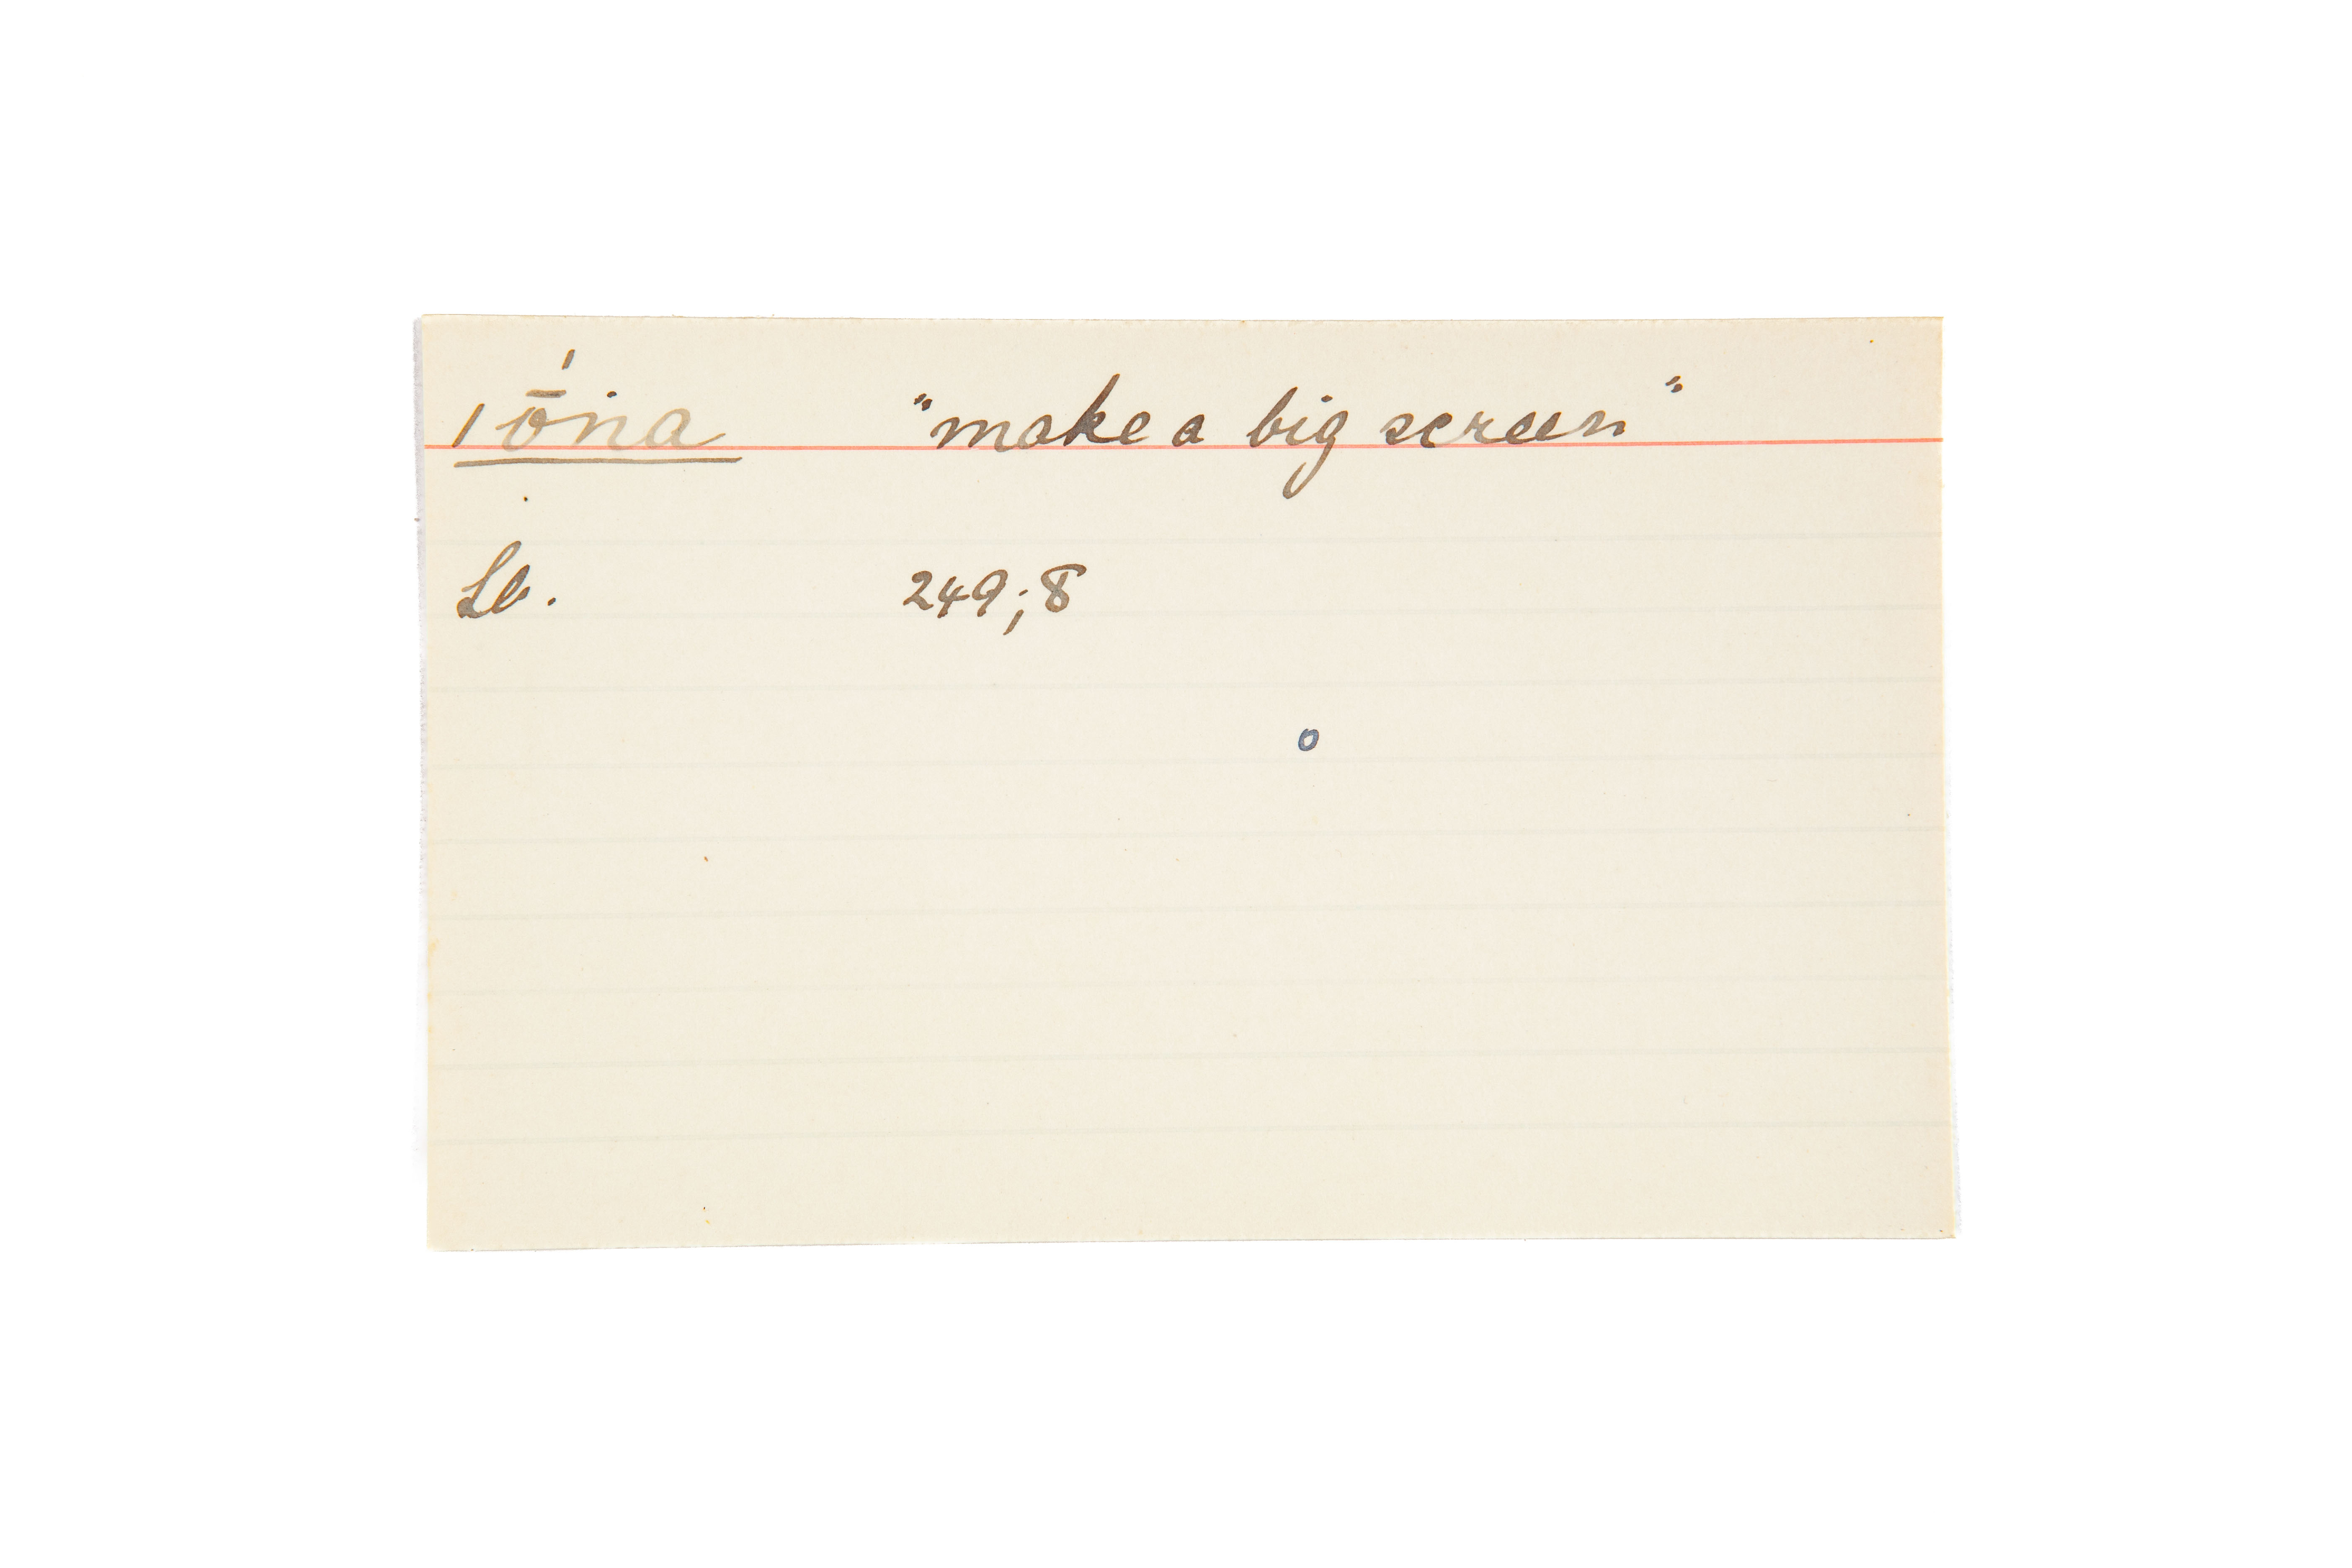 ıṓṅa "make a big screen"
Lb. 249;8
o